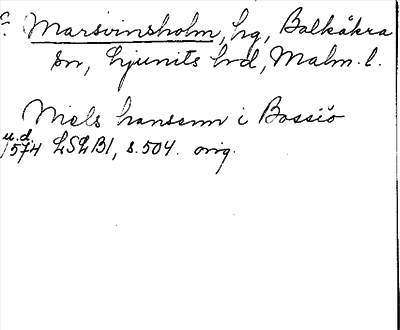 Marsvinsholm, hg, Balkåkra
sn, Ljunits hd, Malm. l.
Niels hanssnn i Bossiö
u.d.
1574 LSLB1, s. 504. orig.